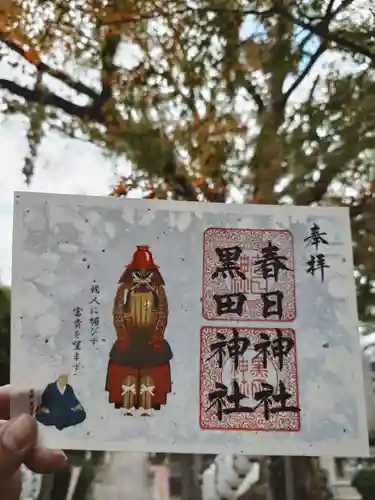 奉拝
春日神社
黒田神社
人に媚びず
富貴を望まず